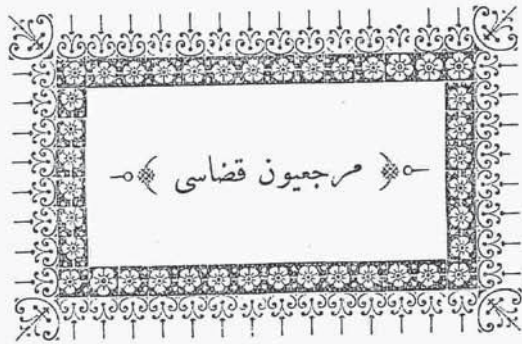 مرجعيون قضاسی